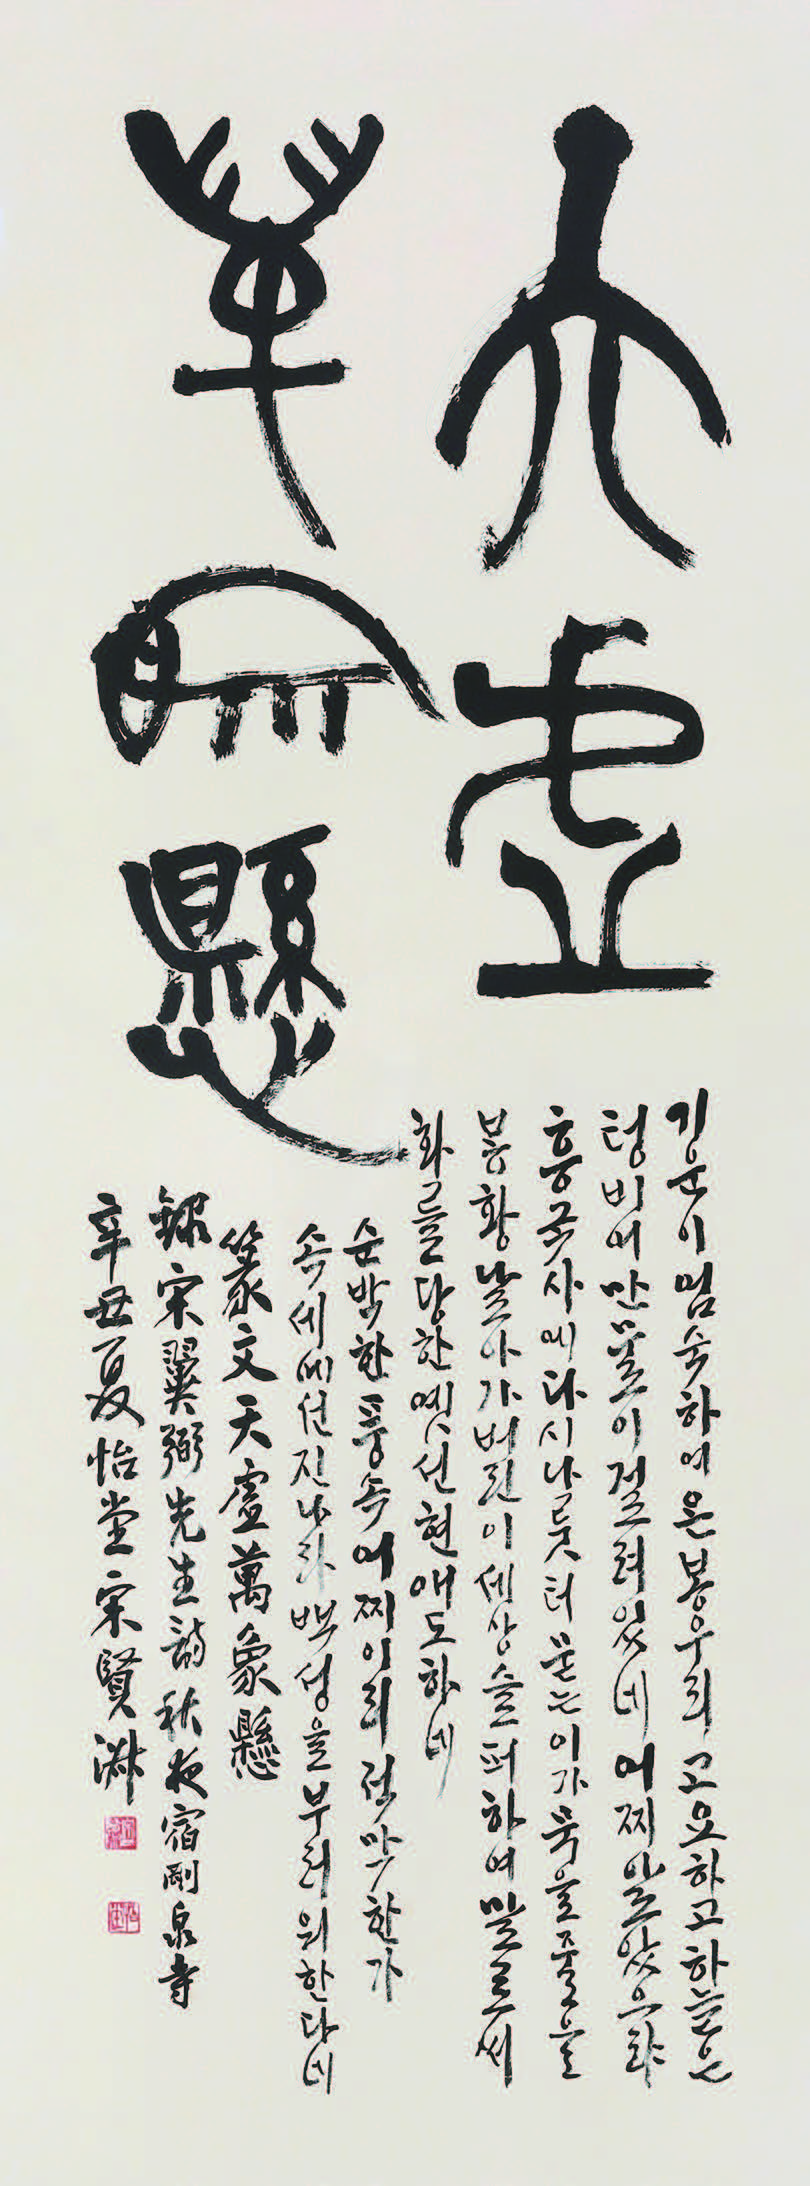 天虛
萬象懸
기운이 엄숙하여 온 봉우리 고요하고 하늘은
텅 비어 만물이 걸려 있네 어찌 알았으랴
다시 나룻터 묻는 이가 묵을 줄을
봉황 날아가버린 이 세상 슬퍼하여 말로써
화를 당한 옛 선현 애도하네
순박한 풍속 어찌 이리 적막한가
속세에선 진나라 백성을 부러워한다네
篆文天虛萬象懸
錄宋翼弼先生詩秋夜宿剛泉寺
辛丑夏怡堂宋賢淑